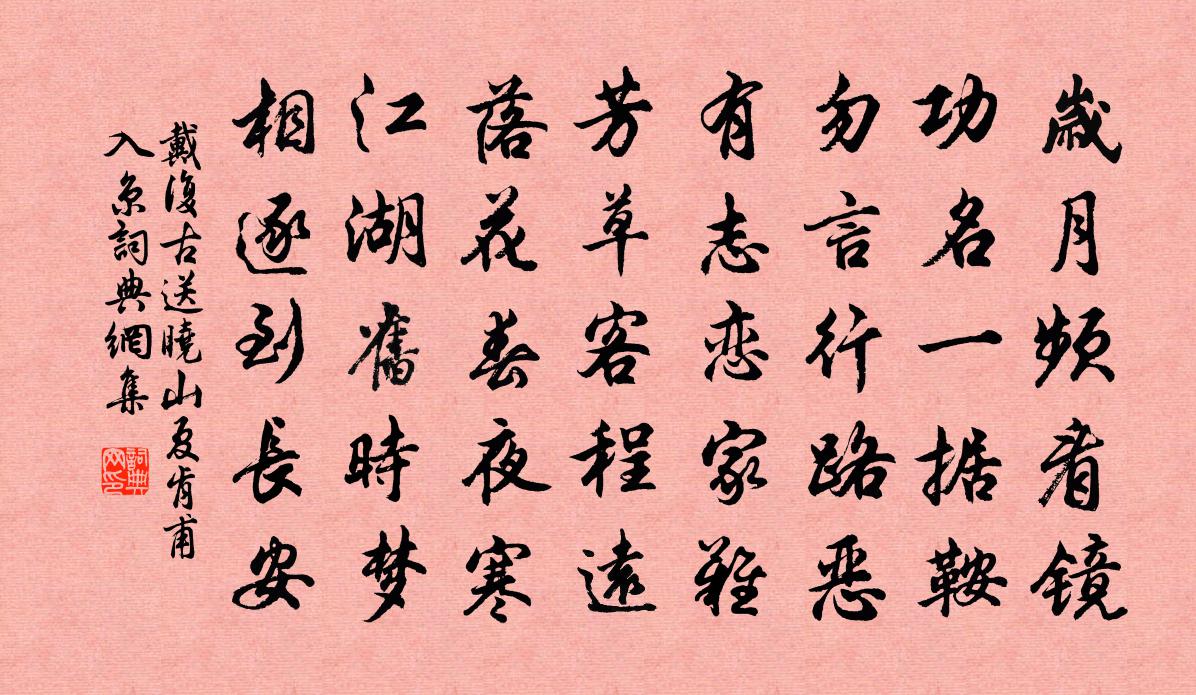 歲月頻看鏡
功名一据鞍
勿言行路惡
有志恋家難
芳草客程遠
落花春夜寒
江湖舊時梦
相逐到長安
戴復古送曉山夏肯甫
入京詞典網集
詞典网印